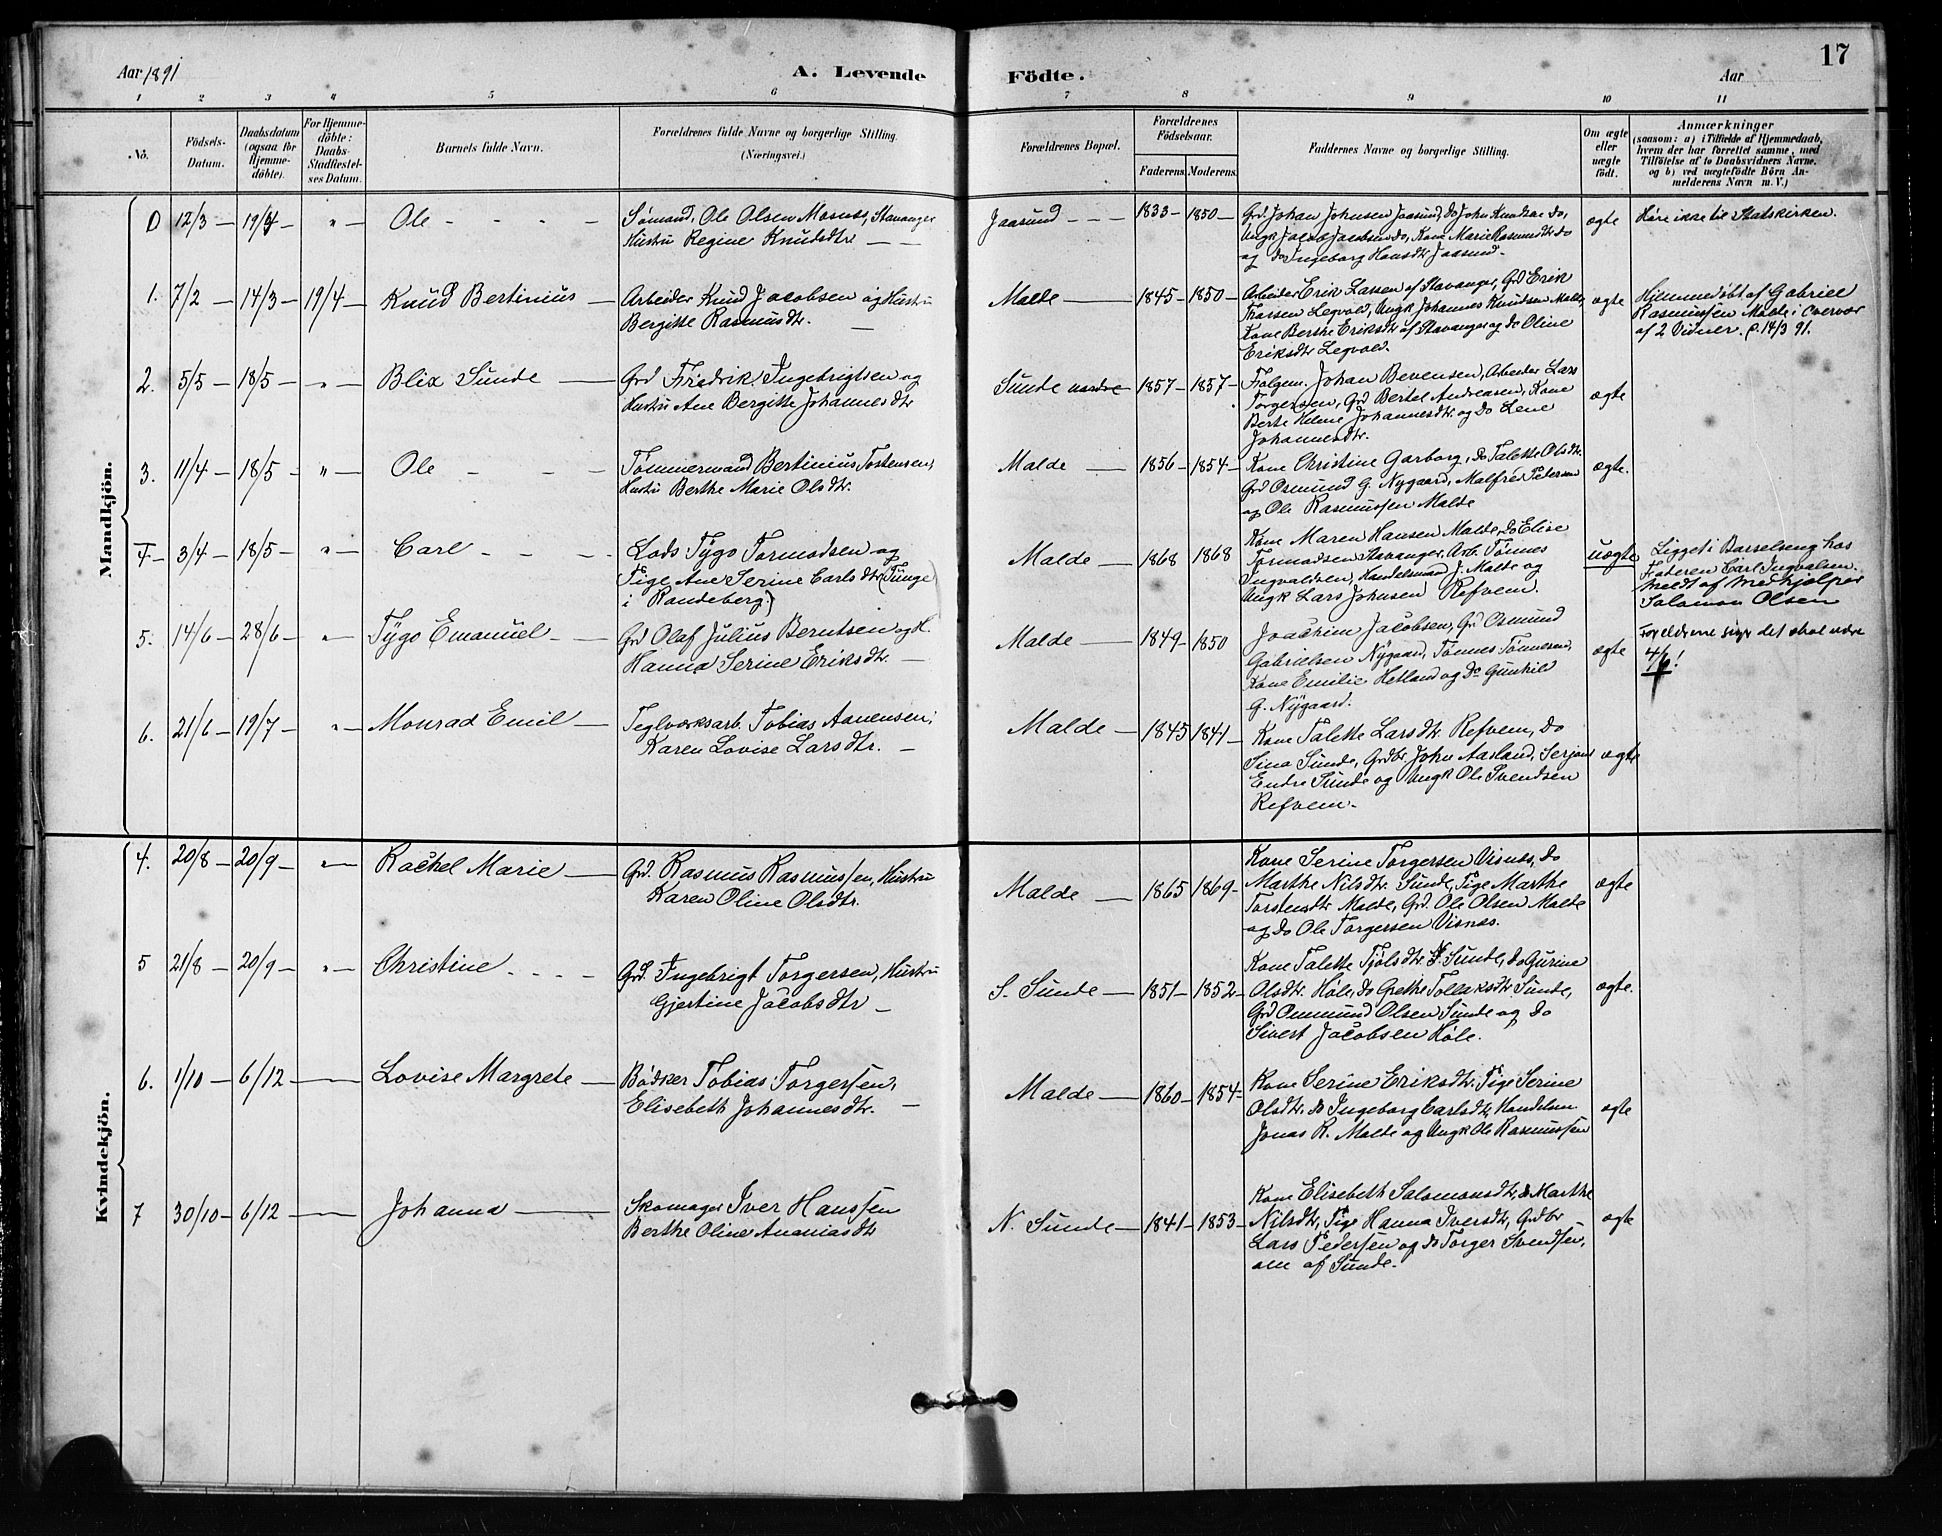 17
Aar 1891
A. Levende Födte.
Aar
1 2 3 4 5 6 7 8 9 10 11
No.
Födsels-
Datum.
Daabsdatum
(ogsaa for
Hjemme-
döbte).
For Hjemme-
döbte:
Daabs-
Stadfæstel-
ses Datum.
Barnets fulde Navn.
Forældrenes fulde Navne og borgerlige Stilling.
(Næringsvei.)
Forældrenes Bopæl.
Forældrenes
Födselsaar.
Faderens. Moderens.
Faddernes Navne og borgerlige Stilling.
Om ægte
eller
uægte
födt.
Anmærkninger
(saasom: a) i Tilfælde af Hjemmedaab,
hvem der har forrettet samme, med
Tilföielse af to Daabsvidners Navne.
og b) ved uægtefödte Börn An-
melderens Navn m. V.)
Mandkjön.
0 12/3 – 19/4 – " – Ole - - - -
Sømand, Ole Olsen Mosnes, Stavanger
Hustru Regine Knudsdtr — —
Jaasund - - - 1833 - 1850 -
Grd. Johan Johnsen Jaasund, do John Knudsen do,
Ungk Jacob Jacobsen do, Kone Marie Rasmusdtr do
og do Ingeborg Hansdtr Jaasund.
ægte
Høre ikke til Statskirken.
1. 7/2 – 14/3 – 19/4 – Knud Bertinius —
Arbeider Knud Jacobsen og Hustru
Bergitte Rasmusdtr. —
Malde — 1845 - 1850 -
Arbeider Erik Lassen af Stavanger, Grd Erik
Thorsen Legvold, Ungk Johannes Knudsen Malde,
Kone Berthe Eriksdtr af Stavanger og do Oline
Eriksdtr Legvold.
ægte
Hjemmedøbt af Gabriel
Rasmussen Malde i Overvær
af 2 Vidner. p. 14/3 91.
2. 5/5 – 18/5 – " – Blix Sunde —
Grd Fredrik Ingebrigtsen og
Hustru Ane Bergitte Johannesdtr
Sunde nordre 1857 - 1857 -
Følgem. Johan Bevensen, Arbeider Lars
Torgersen, Grd Bertel Andreasen, Kone
Berte Helene Johannesdtr. og do Lene
Johannesdtr.
ægte
3. 11/4 – 18/5 – " – Ole - - -
Tømmermand Bertinius Tostensen,
Hustru Berthe Marie Olsdtr.
Malde — 1856 - 1854 -
Kone Christine Garborg, do Talette Olsdtr.
Grd Osmund G. Nygaard, Malfred Petersen
og Ole Rasmussen Malde
ægte.
4 3/4 – 18/5 – " – Carl - - -
Lods Tygo Tormodsen og
Pige Ane Serine Carlsdtr (Tunge
i Randeberg.)
Malde — 1868 1868
Kone Maren Hansen Malde, do Elise
Tormodsen Stavanger, Arb. Tønnes
Ingvaldsen, Handelsmand J. Malde og
Ungk Lars Johnsen Refvem.
uægte
Ligget i Barselseng hos
Faderen Carl Ingvalsen.
Meldt af Medhjelper
Salomon Olsen
5. 14/6 – 28/6 – " – Tygo Emanuel —
Grd Olaf Julius Berntsen og H.
Hanna Serine Eriksdtr. —
Malde — 1849 - 1850
Joachim Jacobsen, Grd Osmund
Gabrielsen Nygaard, Tønnes Tønnesen,
Kone Emilie Hetland og do Gunhild
G. Nygaard.
ægte
Forældrene siger det skal være
4/6!
6. 21/6 – 19/7 – " – Monrad Emil —
Teglværksarb. Tobias Aanensen,
Karen Lovise Larsdtr. —
Malde — 1845 1841 -
Kone Talette Larsdtr. Refvem, do
Sina Sunde, Grdbr. John Aasland, Serjant
Endre Sunde og Ungk Ole Svendsen
Refvem.
ægte
Kvindekjön.
4. 20/8 – 20/9 – " – Rachel Marie —
Grd. Rasmus Rasmussen, Hustru
Karen Oline Olsdtr.
Malde — 1865 1869 -
Kone Serine Torgersen Visnes, do
Marthe Nilsdtr. Sunde, Pige Marthe
Torstensdtr Malde, Grd. Ole Olsen Malde
og do Ole Torgersen Visnes.
ægte
5 21/8 – 20/9 – " – Christine - - - -
Grd. Ingebrigt Torgersen, Hustru
Gjertine Jacobsdtr —
S. Sunde — 1851 - 1852 -
Kone Talette Tjølsdtr N. Sunde, do Gurine
Olsdtr. Høle, do Grethe Tollaksdtr Sunde,
Grd Osmund Olsen Sunde og do
Sivert Jacobsen Høle.
ægte.
6. 1/10 – 6/12 — Lovise Margrete —
Bødker Tobias Torgersen,
Elisebeth Johannesdtr. —
Malde — 1860 - 1854 -
Kone Serine Eriksdtr. Pige Serine
Olsdtr. do Ingeborg Carlsdtr, Handelsm.
Jonas R. Malde og Ungk Ole Rasmussen
ægte
7 30/10 – 6/12 — Johanna —
Skomager Iver Hanssen
Berthe Oline Ananiasdtr
N. Sunde — 1841 - 1853 -
Kone Elisebeth Salomonsdtr, do Marthe
Nilsdtr, Pige Hanna Iversdtr, Grdbr
Lars Pedersen og do Torger Svendsen,
alle af Sunde.
ægte